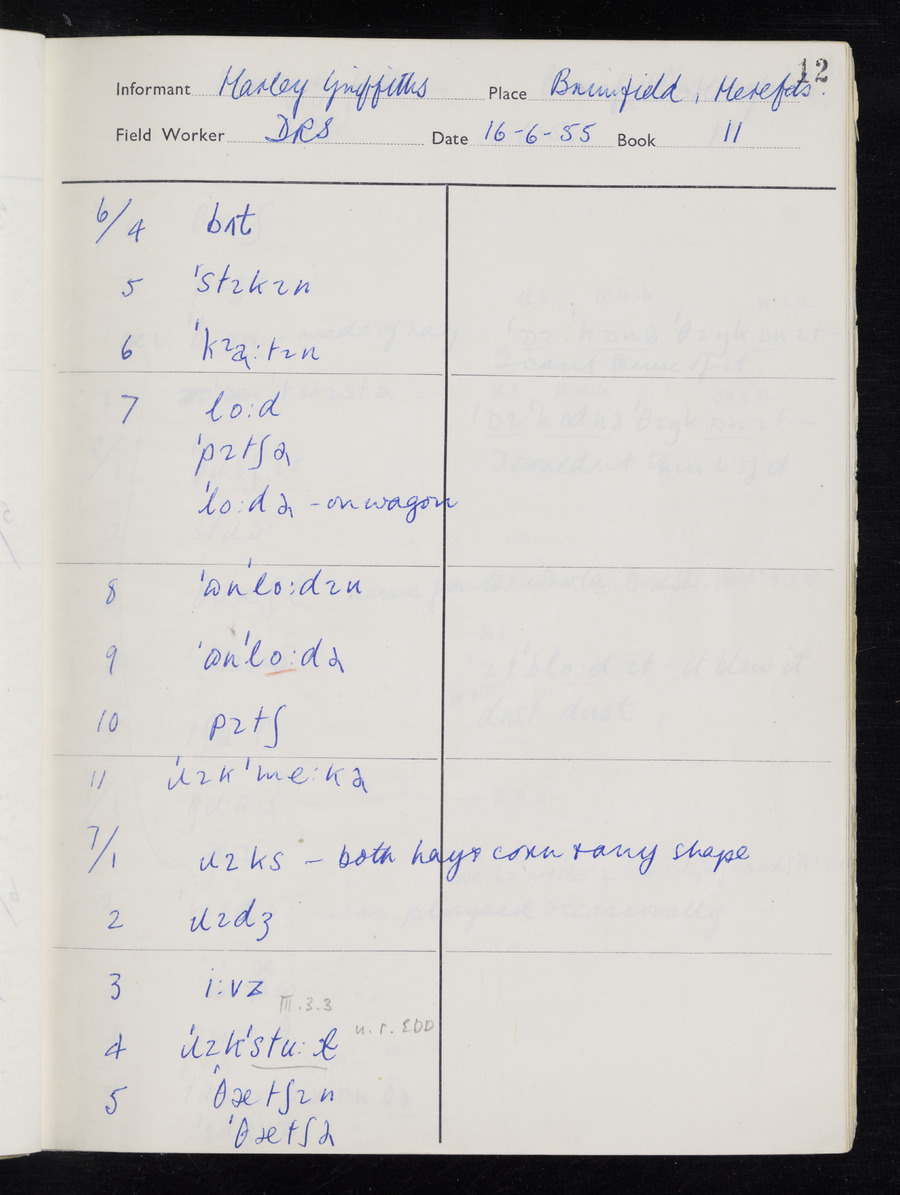 12
Informant Harley Griffiths Place Brimfield, Herefds.
Field Worker DRS Date 16-6-55 Book 11
6/4 bʌt
5 ˈstɪkɪn
6 ˈkɪɑ̢:tɪn
7 lo:d
ˈpɪtʃə
ˈlo:də – on wagon
8 ˈɒnˈlo:dɪn
9 ˈɒnˈlo:də
10 pɪtʃ
11 ˈɹɪkˈme:kə
7/1 ɹɪks – both hay & corn & any shape
2 ɹɪdʒ
3 i:vz
III.3.3
4 ˈɹɪkˈstu:ɫ n.r. EDD
5 ˈθætʃɪn
ˈθætʃə